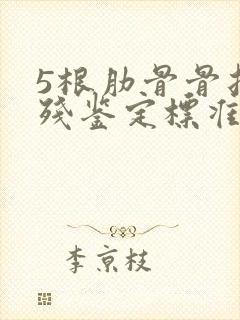 5根肋骨骨
残鉴定标准
李京枝